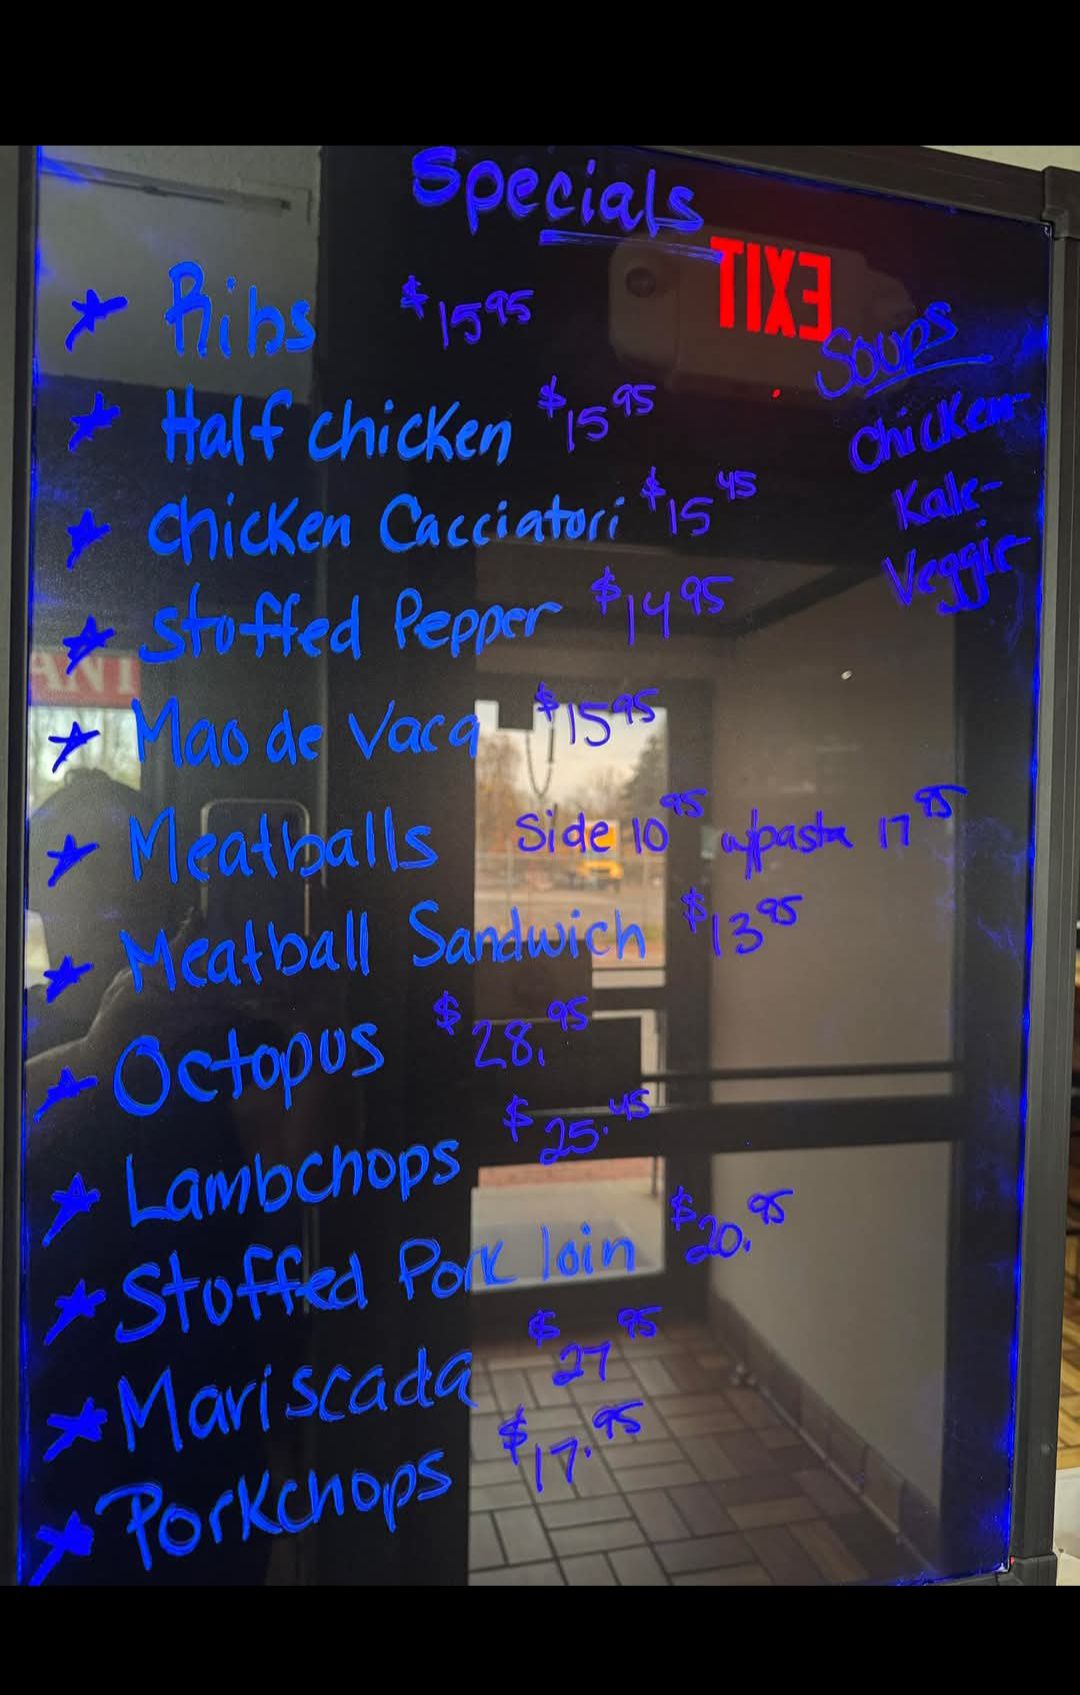 Specials
EXIT
Ribs $15 95
Half chicken $15 95
Chicken Cacciatori $15 45
Stuffed Pepper $14 95
Mao de Vaca $15 95
Meatballs Side 10 95 w/pasta 17 95
Meatball Sandwich $13 95
Octopus $28. 95
Lambchops $25. 45
Stuffed Pork loin $20. 95
Mariscada $27 95
Porkchops $17. 95
Soups
Chicken-
Kale-
Veggie-
ANT